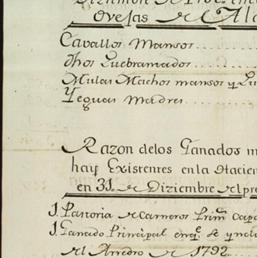 Diziembre de
Ovejas de
Cavallos Mansos
dhos Quebramados
Mulas Machos mansos y
Yeguas Madres
Razon delos Ganados
hay Existentes enla Hacien
en 31 de Diziembre del pre
1. Pastoria de Carneros Prim.
1. Ganado Principal enq. se yncl
de 1792